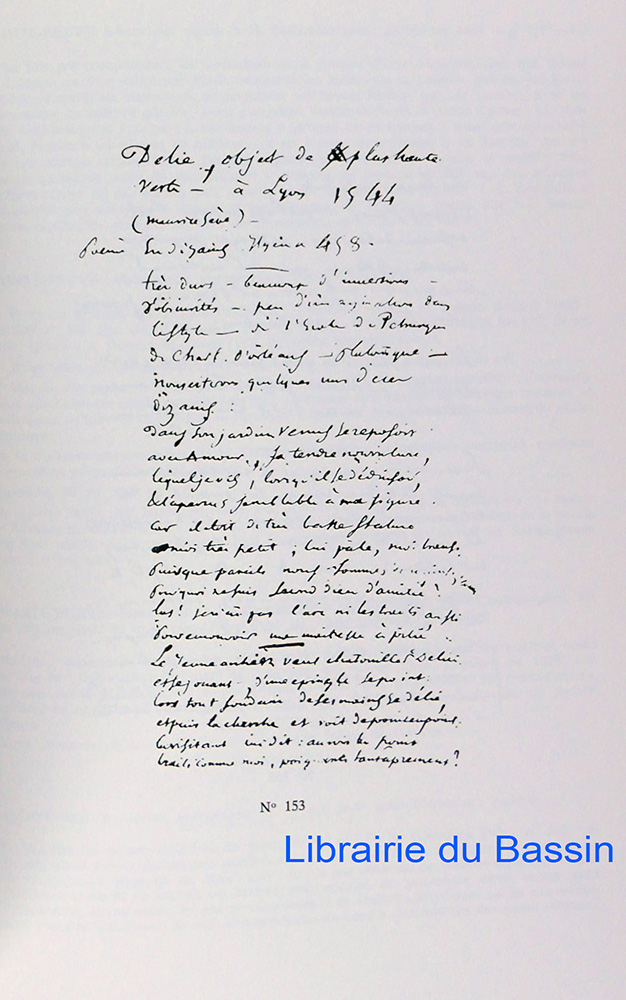 Delie, object de plus haute
Vertu — à Lyon 1544
(maurice Sève) —
Poème En dizains 458 -
très durs — beaucoup d'inversions —
d'obscurités — peu d' dans
le style — de l'Ecole de Petrarque
de Charl. d'orléans — platonique —
nous citerons quelques uns d'eux
dizains :
Dans son jardin Venus se reposoit
avec Amour, sa tendre nourriture,
lequel je vis, lorsqu'il se déduisoit,
et l'aperçus semblable à ma figure.
car il étoit de très basse stature
moi très petit ; lui pâle, moi
Puisque pareils nous sommes
Pourquoi ne suis second dieu d'amitié ?
las ! je n'ai pas l'arc ni les traits aussi
Pour emouvoir une maitresse à pitié.
Le jeune archer veut chatouiller Delie
et se jouant, d'une epingle se point.
lors tout soudain de ses mains se délie,
et puis la cherche et voit de point en point.
la visitant lui dit : aurois tu point
traits comme moi, poignants tant aprement ?
N° 153
Librairie du Bassin